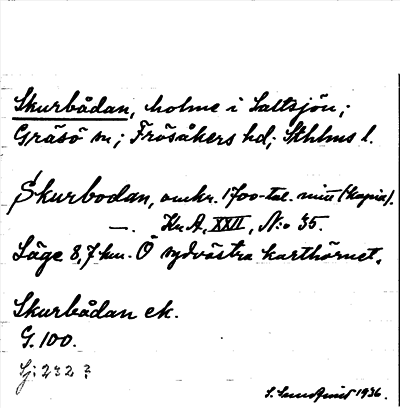 Skurbådan, holme i Saltsjön;
Gräsö sn; Frösåkers hd; Sthlms l.
Skurbodan, omkr. 1700-tal. mitt (kopia).
—. Kr.A, XXII, N:o 35.
Läge 8,7 km. Ö sydvästra karthörnet.
Skurbådan ek.
G. 100.
Sj: 232 ?
S. 1936.